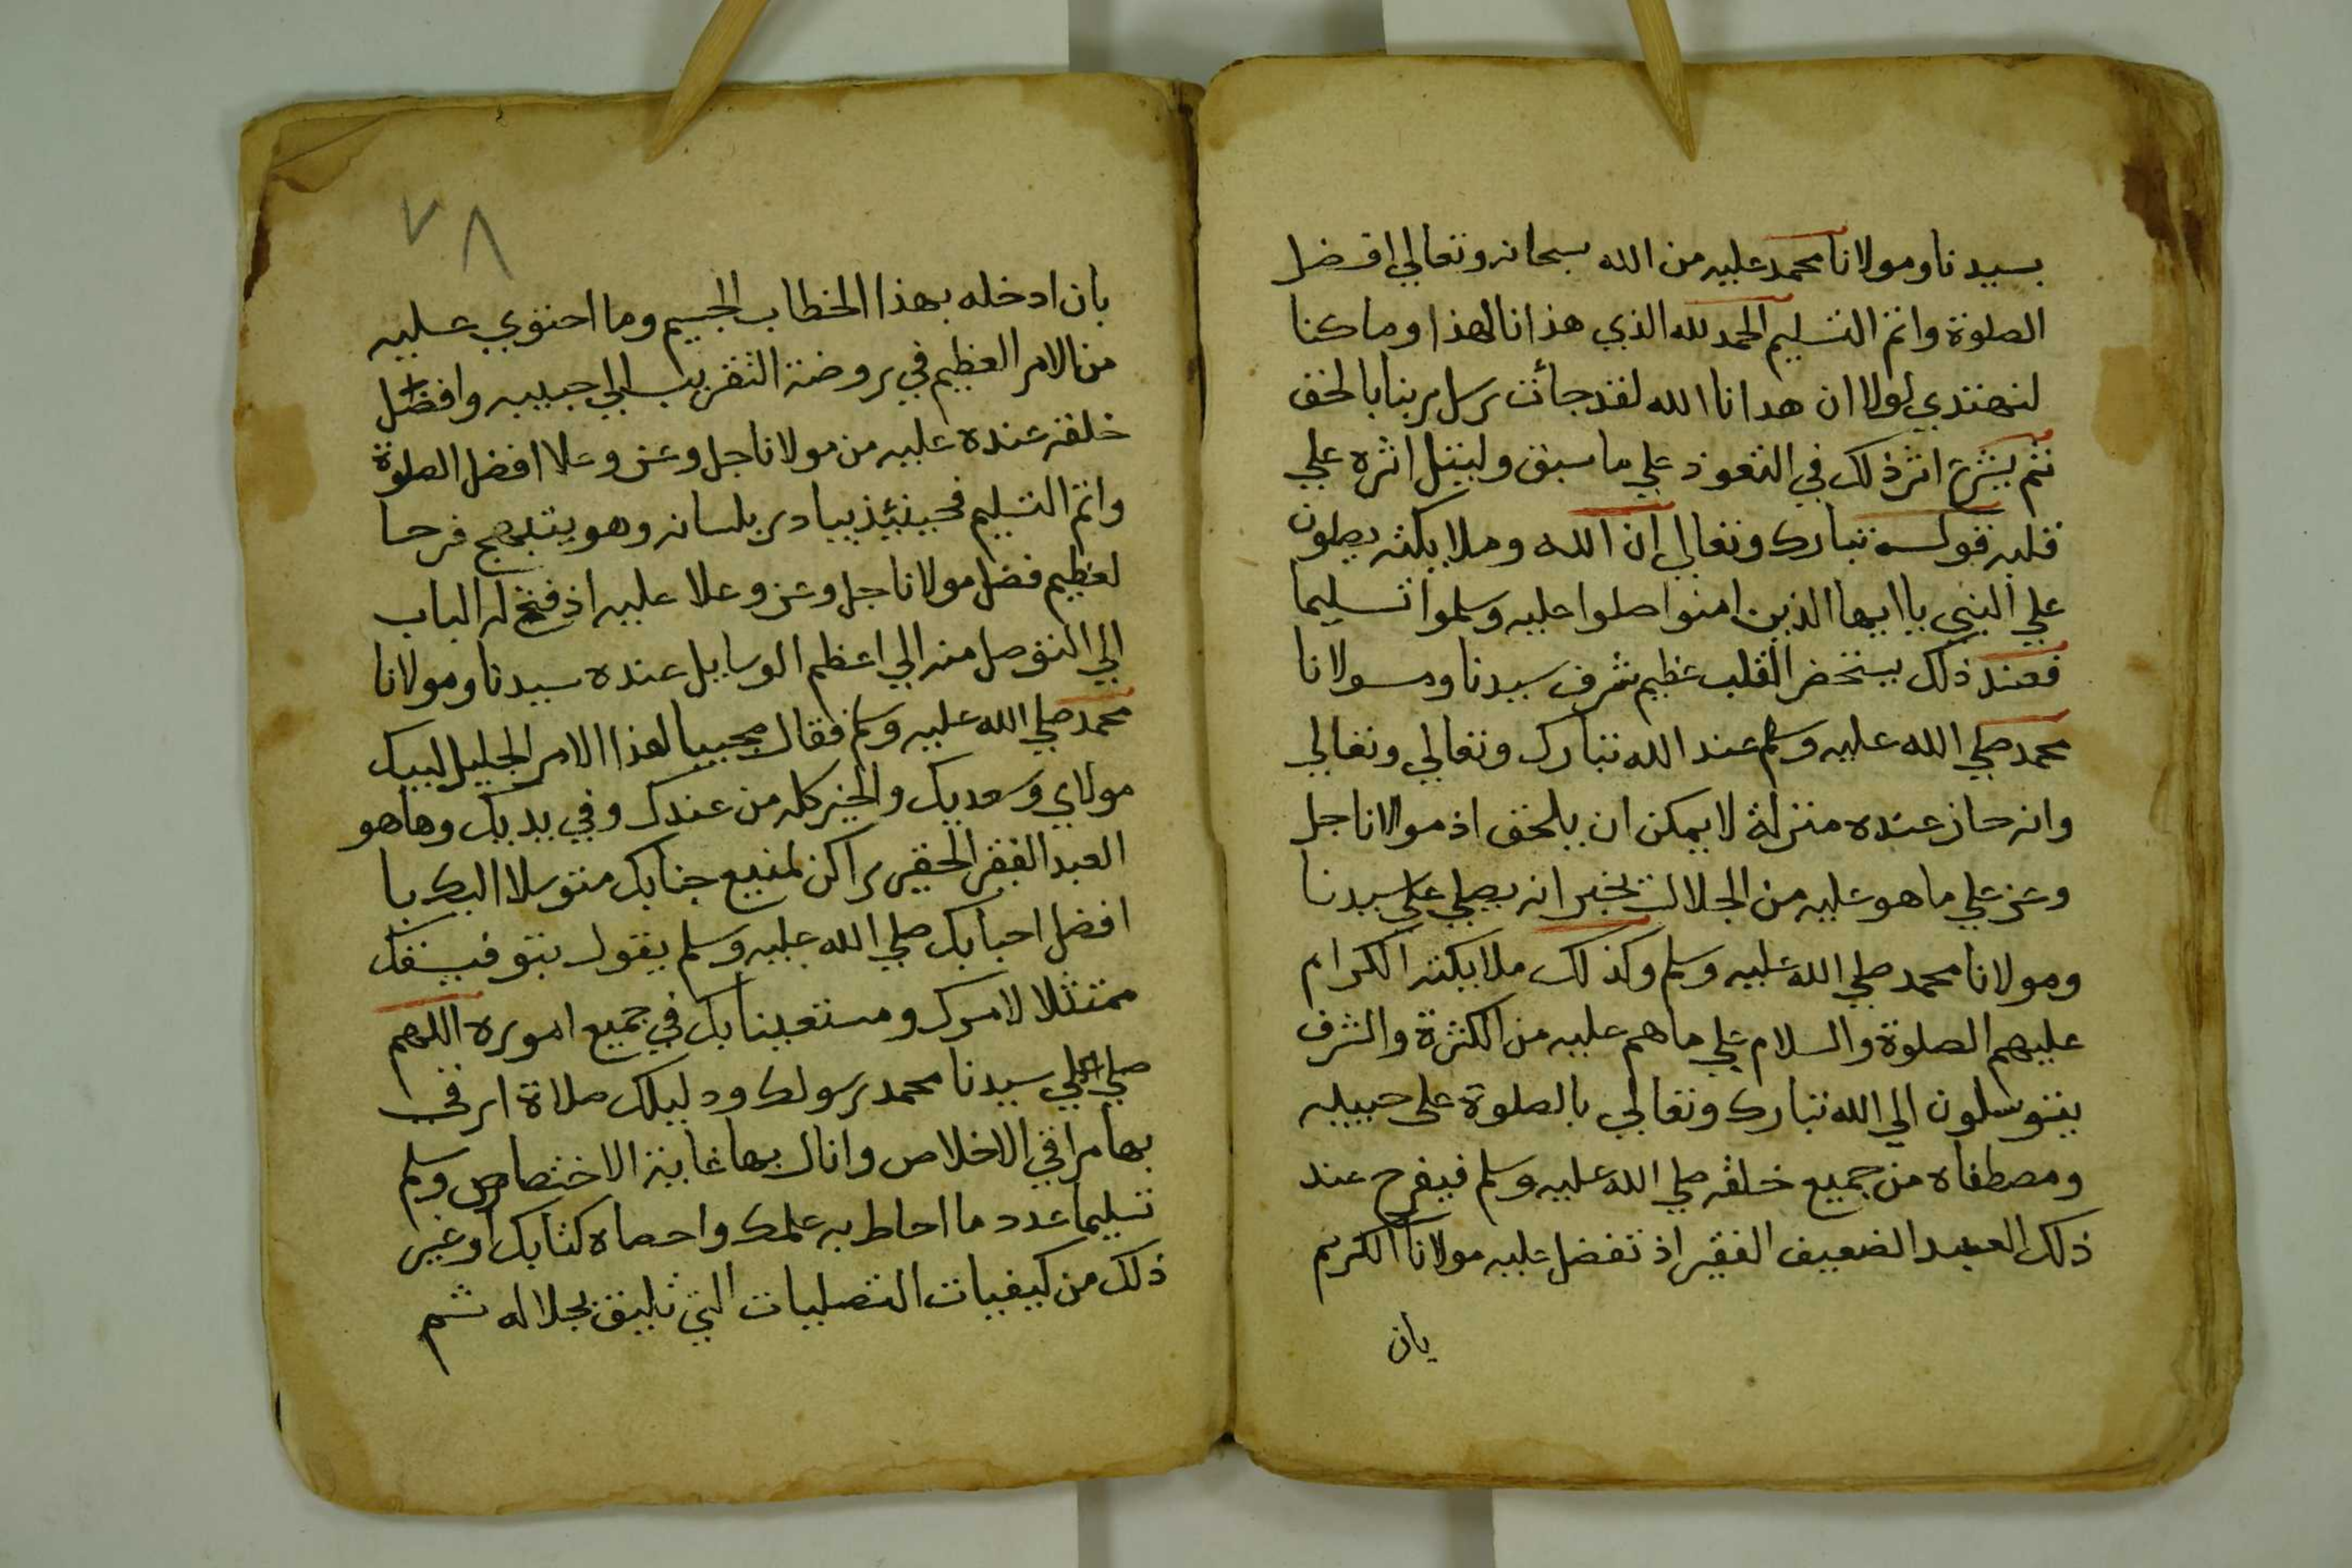 بسيدنا ومولانا محمد عليه من الله سبحانه وتعالي افضل
الصلوة واتم التسليم الحمد لله الذي هذانا لهذا وما كنا
لنهتدي لولا ان هدانا الله لقد جأت رسل ربنا بالحق
ثم يشرع اثر ذلك في التعوذ علي ما سبق وليتل اثره علي
قلبه قوله تبارك وتعالي ان الله وملايكته يصلون
علي النبي يا ايها الذين امنوا صلوا عليه وسلموا تسليما
فعند ذلك يستحضر القلب عظيم شرف سيدنا ومولانا
محمد صلي الله عليه وسلم عند الله تبارك وتعالي وتعالي
وانه حاز عنده منزلة لا يمكن ان يلحق اذ مولانا جل
وعز علي ما هو عليه من الجلالت يخبر انه يصلي علي سيدنا
ومولانا محمد صلي الله عليه وسلم وكذلك ملايكته الكرام
عليهم الصلوة والسلام علي ما هم عليه من الكثرة والشرف
يتوسلون الي الله تبارك وتعالي بالصلوة على حبيبه
ومصطفاه من جميع خلقه صلي الله عليه وسلم فيفرح عند
ذلك العبد الضعيف الفقير اذ تفضل عليه مولانا الكريم
بان
٧٨
بان ادخله بهذا الخطاب الجسيم وما احتوي عليه
من الامر العظيم في روضة التقريب الي حبيبه وافضل
خلقه عنده عليه من مولانا جل وعز وعلا افضل الصلوة
واتم التسليم فحينئذ يبادر بلسانه وهو يبتهج فرحا
لعظيم فضل مولانا جل وعز وعلا عليه اذ فتح له الباب
الي التوصل منه الي اعظم الوسايل عنده سيدنا ومولانا
محمد صلي الله عليه وسلم فقال مجيبا لهذا الامر الجليل لبيك
مولاي وسعديك والخير كله من عندك وفي يديك وها هو
العبد الفقير الحقير راكن لمنيع جنابك متوسلا اليك يا
افضل احبابك صلي الله عليه وسلم يقول بتوفيقك
ممتثلا لامرك ومستعينا بك في جميع اموره اللهم
صلي علي سيدنا محمد رسولك ودليلك صلاة ارقي
بها مراقي الاخلاص وانال بها غاية الاختصاص وسلم
تسليما عدد ما احاط به علمك واحصاه كتابك او غير
ذلك من كيفيات التصليات التي تليق بجلاله ثم